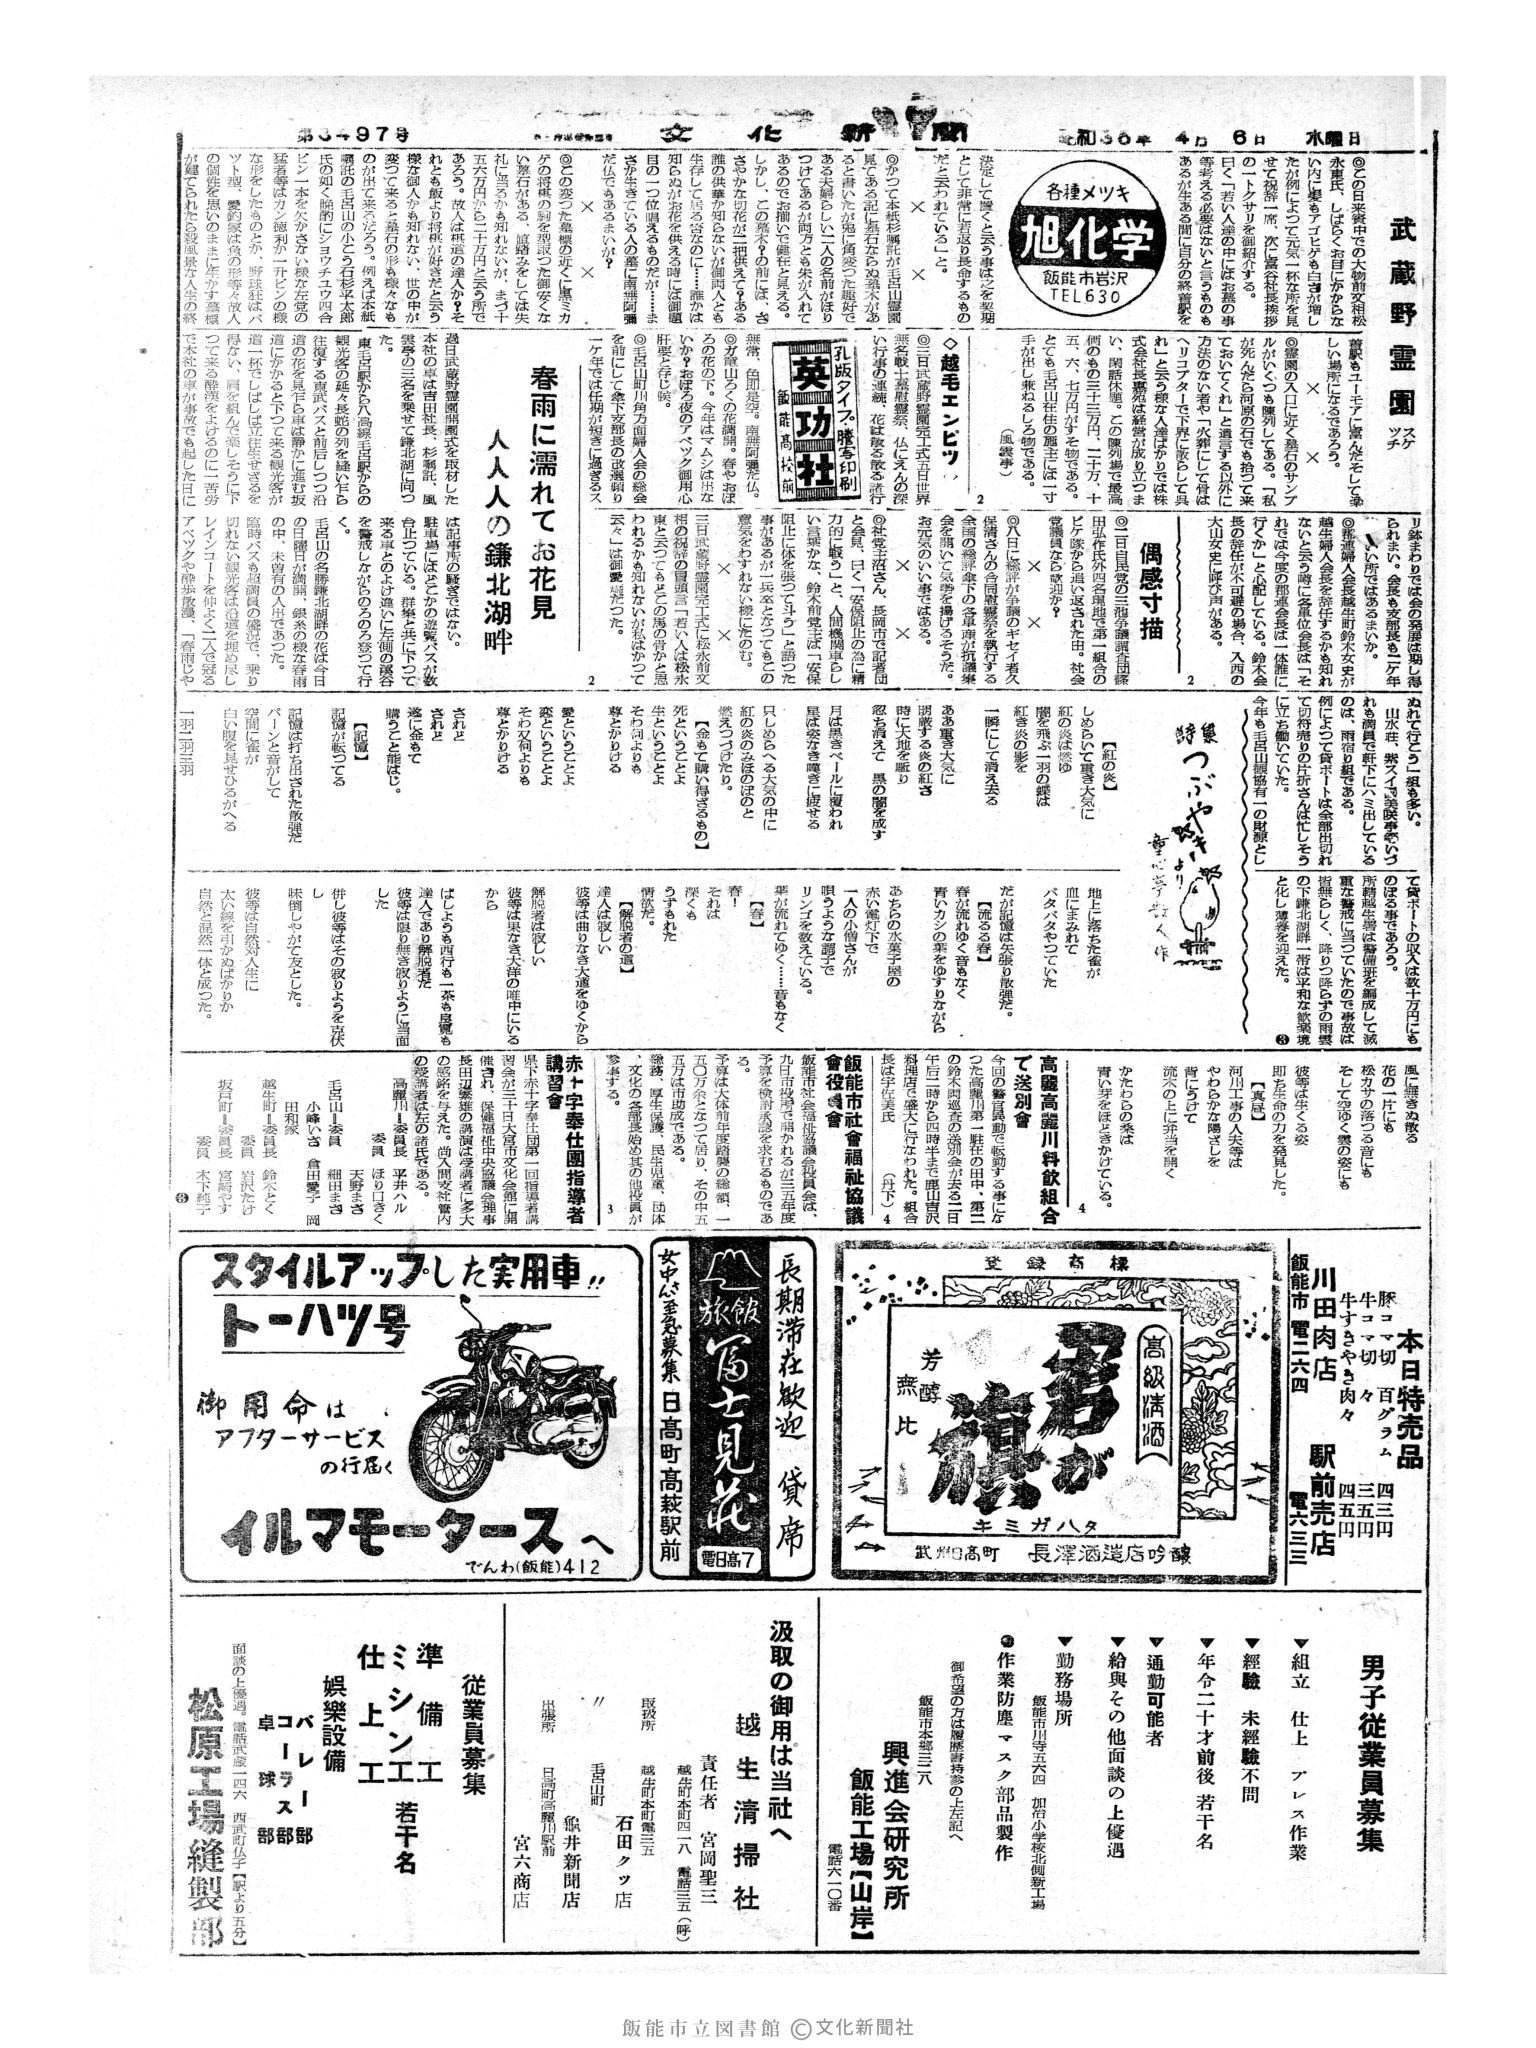 第3497号
文化新聞
昭和36年4月6日
水曜日
武蔵野霊園
スケッチ
◎この日来賓中での大物前文相松
永東氏、しばらくお目にかからな
い内に髪もアゴヒゲも白さが増し
たが例によつて元気一杯な所を見
せて祝辞一席、次に富谷社長挨拶
の一トクサリを御紹介する。
曰く「若い人達の中にはお墓の事
等考える必要はないと言うものも
あるが生ある間に自分の終着駅を
各種メツキ
旭化学
飯能市岩沢
TEL630
決定して置くと云う事は之を契期
として非常に若返り長命するもの
だと云われている」と。
× ×
◎かつて本紙杉嘱託が毛呂山霊園
見てある記に墓石ならぬ墓木があ
ると書いたが鬼に角変つた趣好で
ある夫婦らしい二人の名前がほり
つけてあるが両方とも朱が入れて
あるのでお揃いで健在と見える。
しかし、この墓木？の前には、さ
さやかな切花が二把供えて？ある
誰の供華か知らないが御両人とも
生存して居る筈なのに……誰かは
知らぬがお花を供える時には御題
目の一つ位唱えるものだが……ま
さか生きている人の墓に南無阿彌
だ仏でもあるまいが？
× ×
◎この変つた墓標の近くに黒ミカ
ゲの将棋の駒を型取つた御安くな
い墓石がある、値踏みをしては失
礼に当るかも知れないが、まづ十
五六万円から二十万円と云う所で
あろう。故人は棋道の達人か？そ
れとも飯より将棋が好きだと云う
様な御人かも知れない、世の中が
変つて来ると墓石の形も様々なも
のが出て来るだろう。例えば本紙
嘱託の毛呂山の小どう石杉平太郎
氏の如く晩酌にシヨウチユウ四合
ビン一本を欠かさない様な左党の
猛者等はカン徳利か一升ビンの様
な形をしたものとか、野球狂はバ
ツト型、愛釣家は魚の形等々故人
の個性を思いのままに生かす墓標
が建てられたら殺風景な人生の終
着駅もユーモアに富んだそして楽
しい場所になるであろう。
× ×
◎霊園の入口に近く墓石のサンプ
ルがいくつも陳列してある。「私
が死んだら河原の石でも拾つて来
ておいてくれ」と遺言する以外に
方法のない者や「火葬にして骨は
ヘリコプターで下界に散らして呉
れ」と云う様な人達ばかりでは株
式会社長寿苑は経営が成り立つま
い、閑話休題。この陳列場で最高
価のもの三十三万円、二十万、十
五、六、七万円がすそ物である。
とても毛呂山在住の施主には一寸
手が出し兼ねるしろ物である。
（風雲亭）
2
◇越毛エンピツ
◎三日武蔵野霊園完工式五日世界
無名戦士墓慰霊祭、仏にえんの深
い行事の連続、花は散る散る諸行
孔版タイプ・謄写印刷
英功社
飯能高校前
無常、色即是空。南無阿彌だ仏。
◎ガ竜山ろくの花満開。春やおぼ
ろの花の下。今年はマムシは出な
いかや。おぼろ夜のアベツク御用心
肝要と存じ候。
◎毛呂山町川角方面婦人会の総会
を前にして傘下支部長の改選頻り
一ケ年では任期が短きに過ぎるス
リ鉢まわりでは会の発展は期し得
られまい。会長も支部長も二ケ年
いい所ではあるまいか。
◎郡連婦人会長越生町鈴木女史が
越生婦人会長を辞任するかも知れ
ないと云う噂に各単位会長は「そ
れでは今度の郡連会長は一体誰に
行くか」と心配している。鈴木会
長の辞任が不可避の場合、入西の
大山女史に呼び声がある。
2
偶感寸描
◎二日自民党の三池争議調査団篠
田弘作氏外四名現地で第一組合の
ピケ隊から追い返された由。社会
党議員なら歓迎か？
× ×
◎八日に総評が争議のギセイ者久
保清さんの合同慰霊祭を執行する
全国の総評傘下の各単産が抗議集
会を開いて気勢を揚げるそうだ。
お元気のいい事ではある。
× ×
◎社党主沼さん、長岡市で記者団
と会見、曰く「安保阻止の為に精
力的に戦う」と、人間機関車らし
い言葉かな、鈴木前党主は「安保
阻止に体を張つて斗う」と語つた
事があるが一兵卒となつてもこの
意気をわすれない様にたのむ。
三日武蔵野霊園完工式に松永前文
相の祝辞の冒頭言「若い人は松永
東と云つてもどこの馬の骨かと思
われるかも知れないが私はかつて
云々」は御愛嬌だつた。
2
春雨に濡れてお花見
人人人の鎌北湖畔
過日武蔵野霊園開園式を取材した
本社の車は吉田社長、杉嘱託、風
雲亭の三名を乗せて鎌北湖に向つ
た。
東毛呂駅から八高線毛呂駅からの
観光客の延々長蛇の列を縫い乍ら
往復する東武バスと前后しつつ沿
道の花を見乍ら車は静かに進む坂
道にかかると下つて来る観光客が
道一杯でしばしば立往生せざるを
得ない、肩を組んで楽しそうに下
つて来る酔漢をよけるのに一苦労
で本社の車が事故でも起した日に
は記事所の騒ぎではない。
駐車場にはどこかの遊覧バスが数
台止つている。群集と共に下つて
来る車とのよけ違いに左側の渓谷
を警戒しながらのろのろ登つて行
く。
毛呂山の名勝鎌北湖畔の花は今日
の日曜日が満開、銀糸の様な春雨
の中、未曽有の人出であつた。
臨時バスも超満員の盛況で、乗り
切れない観光客は沿道を埋め尽し
レインコートを仲よく二人で冠る
アベツクや酔歩散漫、「春雨じや
ぬれて行こう」組も多い。
山水荘、紫スイ、「美咲亭いづ
れも満員で軒下にハミ出している
のは、雨宿り組である。
例によつて貸ボートは全部出切れ
て切符売りの片折さんは忙しそう
に立ち働いていた。
今年も毛呂山観協有一の財源とし
て貸ボートの収入は数十万円にも
のぼる事であろう。
所轄越生署は警備班を編成して滅
重な警戒に当つていたので事故は
皆無らしく、降りつ降らずの雨雲
の下鎌北湖畔一帯は平和な歓楽境
と化し薄春を迎えた。
3
特集
つぶやきより
【紅の炎】
しめらいて重き大気に
紅の炎は燃ゆ
闇を飛ぶ一羽の蝶は
紅き炎の影を
一瞬にして消え去る
ああ重き大気に
胡蔵する炎の紅さ
時に大地を駈り
忽ち消えて 黒の闇を成す
月は黒きベールに覆われ
星は姿なき嘆きに疲せる
只しめらへる大気の中に
紅の炎のみほのぼのと
燃えつづけたり。
【金もて購い得ざるもの】
死ということよ
生ということよ
そわ何よりも
尊とかりける
愛ということよ
恋ということよ
そわ又何よりも
尊とかりける
されど
されど
遂に金もて
購うこと能はじ。
【記憶】
記憶が転つてる
記憶は打ち出された散弾だ
パーンと音がして
空間に雀が
白い腹を見せひるがへる
一羽二羽三羽
地上に落ちた雀が
血にまみれて
バタバタやつていた
だが記憶は矢張り散弾だ。
【流るる春】
春が流れゆく音もなく
青いカシの葉をゆすりながら
あちらの水菓子屋の
赤い電灯下で
一人の小僧さんが
唄うような調子で
リンゴを数えている。
葉が流れてゆく……音もなく
【春】
春！
それは
深くも
うずもれた
情欲だ。
【解脱者の道】
達人は寂しい
彼等は曲りなき大道をゆくから
解脱者は寂しい
彼等は果なき大洋の唯中にいる
から
ばしようも西行も一茶も良寛も
達人であり解脱者だ
彼等は限り無き寂りように当面
した
併し彼等はその寂りようを克伏
し
味倒しやがて友とした。
彼等は自然対人生に
太い線を引かぬばかりか
自然と混然一体と成つた。
風に無きぬ散る
花の一片にも
松カサの落つる音にも
そして空ゆく雲の姿にも
彼等は生くる姿
即ち生命の力を発見した。
【真昼】
河川工事の人夫等は
やわらかな陽ざしを
背にうけて
流木の上に弁当を開く
かたわらの桑は
青い芽をほどきかけている。
4
高麗高麗川料飲組合
で送別會
今回の警官異動で転勤する事にな
つた高麗川第一駐在の田中、第二
の鈴木両巡査の送別会が去る二日
午后二時から四時半まで鹿山吉沢
料理店で盛大に行なわれた。組合
長は宇佐美氏 （丹下） 4
飯能市社會福祉協議
會役員會
飯能市社会福祉協議会役員会は、
九日市役所で開かれるが三五年度
予算を検討承認を求むるものであ
る。
予算は大体前年度踏襲の総額、一
五〇万余となつて居り、その中五
五万は市助成である。
総務、厚生保護、民生児童、団体
、文化の各部長始め其の他役員が
参事する。
3
赤十字奉仕團指導者
講習會
県下赤十字奉仕団第一回指導者講
習会が三十日大宮市文化会館に開
催され、保健福祉中央協議会理事
長田辺繁雄の講演は受講者に多大
の感銘を与えた。尚入間支社管内
の受講者は左の諸氏である。
高麗川＝委員長 平井ハル
委員 ほり口きく
天野まさ
毛呂山＝委員 細田まさ
小峰いさ 倉田愛子 岡
田和家
越生町＝委員長 鈴木とく
委員 岩沢たけ
坂戸町＝委員長 宮崎やす
委員 木下純子
3
本日特売品
豚コマ切 百グラム 四三円
牛コマ切 々 三五円
牛すきやき肉々 四五円
川田肉店 駅前売店
飯能市 電二六四 電六三三
登録商標
高級清酒
君が旗
芳醇無比
キミガハタ
武州日高町 長澤酒造店吟醸
長期滞在歓迎 貸席
旅館 富士見荘
電日高7
女中さん至急募集 日高町高萩駅前
スタイルアップした実用車!!
トーハツ号
御用命は
アフターサービス
の行届く
イルマモータースへ
でんわ（飯能）412
男子従業員募集
▼組立 仕上 プレス作業
▼經驗 未經驗不問
▼年令二十才前後 若干名
▼通勤可能者
▼給與その他面談の上優遇
▼勤務場所
飯能市川寺五六四 加治小学校北側新工場
●作業防塵マスク部品製作
御希望の方は履歴書持参の上左記へ
飯能市本郷三二八
興進会研究所
飯能工場【山岸】
電話六一〇番
汲取の御用は当社へ
越生清掃社
責任者 宮岡聖三
越生町本町四一八 電話三五（呼）
取扱所 越生町本町電三五
石田クツ店
〃 毛呂山町
龜井新聞店
出張所 日高町高麗川駅前
宮六商店
従業員募集
準備工
ミシン工 若干名
仕上工
娯樂設備
バレー部
コーラス部
卓球部
面談の上優遇。電話武蔵一四六 西武町仏子【駅より五分】
松原工場縫製部
飯能市立図書館 ©文化新聞社